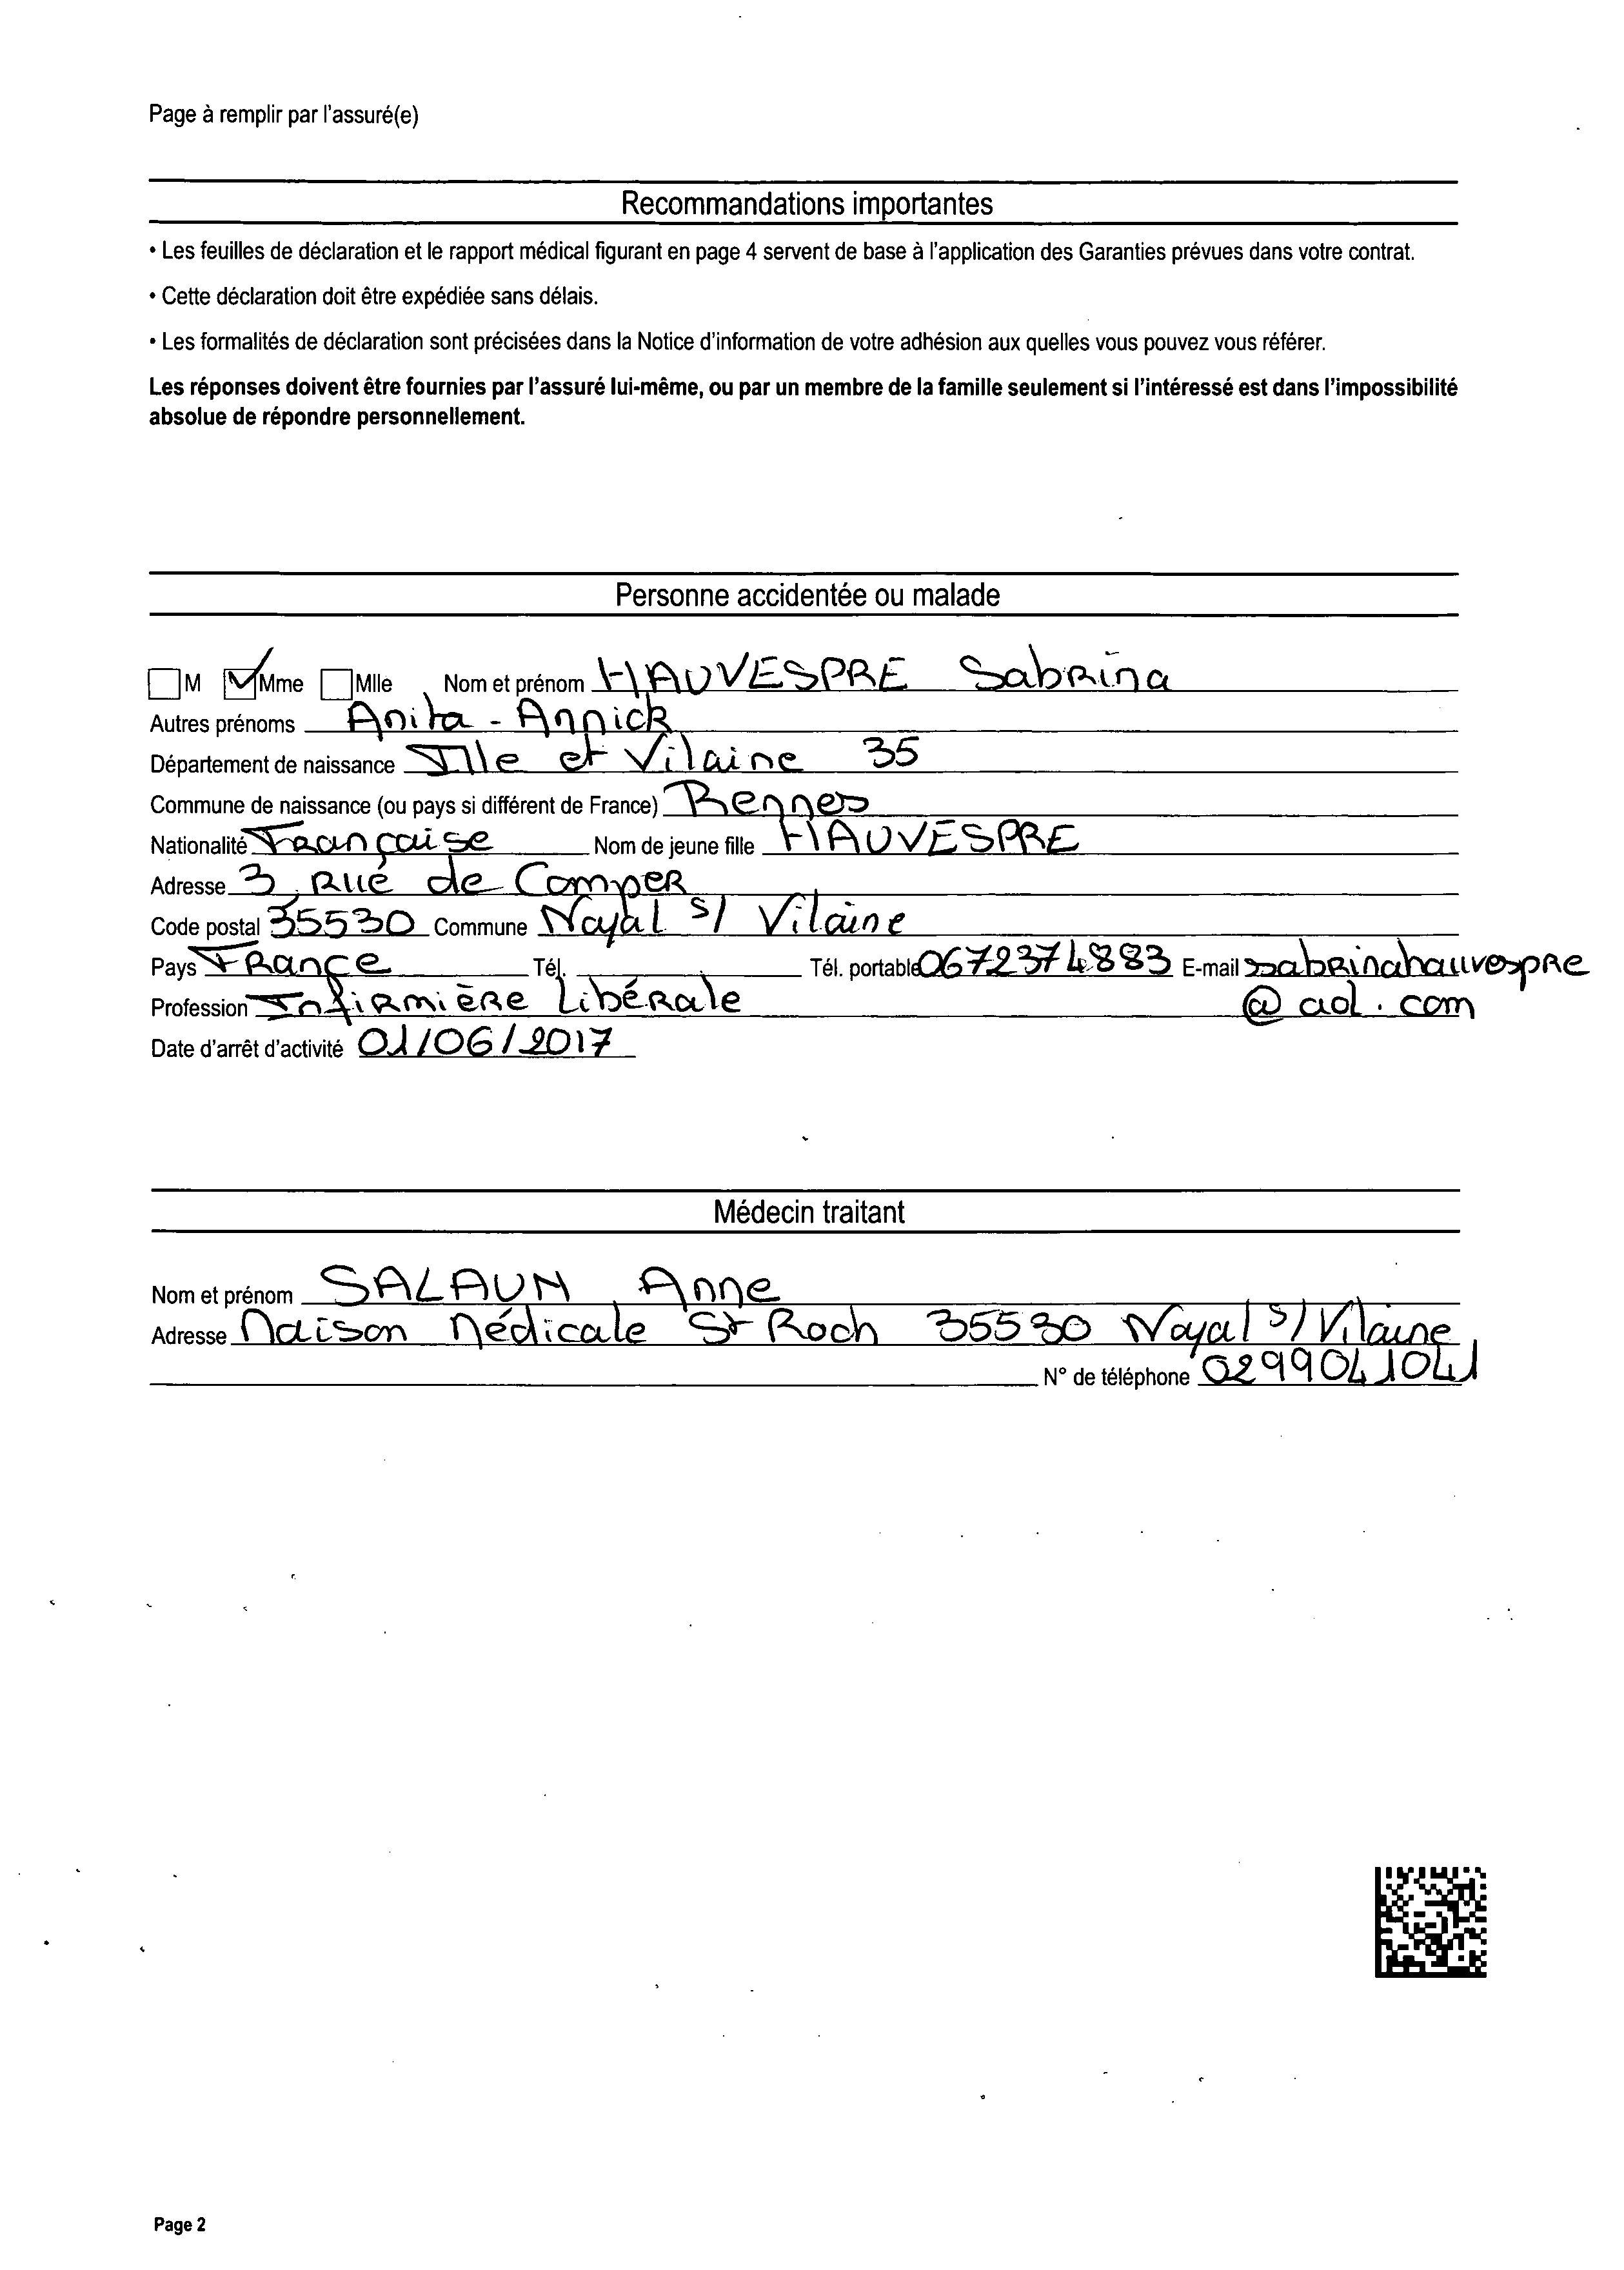 Page à remplir par l'assuré(e)
Recommandations importantes
• Les feuilles de déclaration et le rapport médical figurant en page 4 servent de base à l'application des Garanties prévues dans votre contrat.
• Cette déclaration doit être expédiée sans délais.
• Les formalités de déclaration sont précisées dans la Notice d'information de votre adhésion aux quelles vous pouvez vous référer.
Les réponses doivent être fournies par l'assuré lui-même, ou par un membre de la famille seulement si l'intéressé est dans l'impossibilité
absolue de répondre personnellement.
Personne accidentée ou malade
M Mme Mlle Nom et prénom HAUVESPRE Sabrina
Autres prénoms Anita - Annick
Département de naissance Ille et Vilaine 35
Commune de naissance (ou pays si différent de France) Rennes
Nationalité Française Nom de jeune fille HAUVESPRE
Adresse 3, Rue de Comper
Code postal 35530 Commune Noyal s/ Vilaine
Pays France Tél. Tél. portable 0672374883 E-mail sabrinahauvespre
Profession Infirmière Libérale @ aol.com
Date d'arrêt d'activité 01/06/2017
Médecin traitant
Nom et prénom SALAUN Anne
Adresse Maison Médicale St Roch 35530 Noyal s/ Vilaine
N° de téléphone 0299041041
Page 2